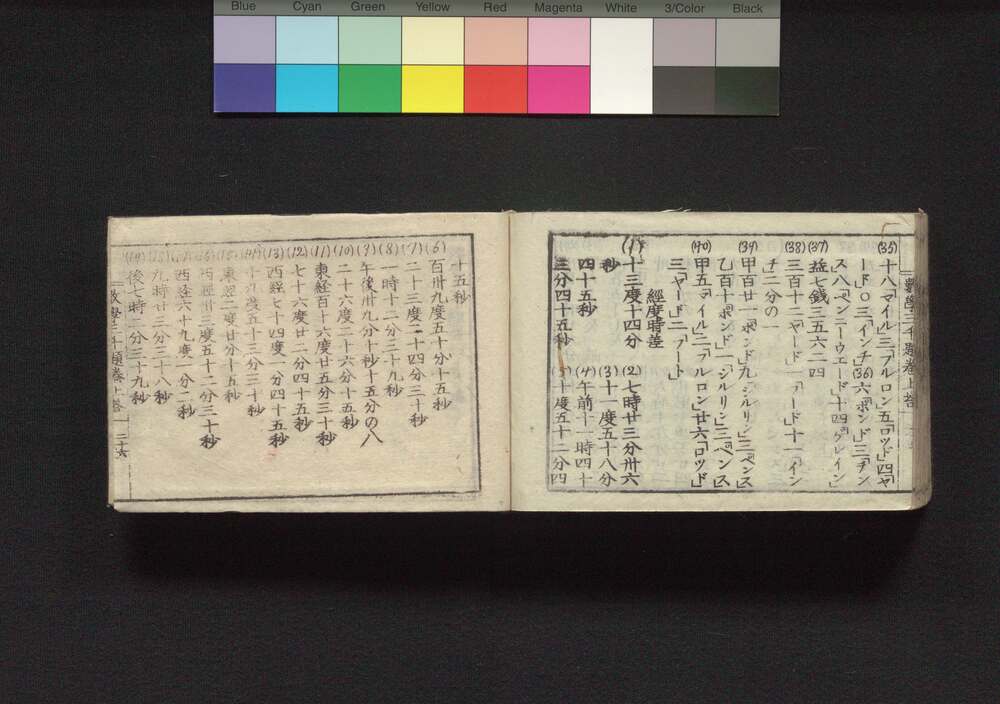 Blue Cyan Green Yellow Red Magenta White 3/Color Black
(35) 十八「マイル」三「フルロン」五「ロツド」四「ヤ
ード」〇三「インチ」(36)六「ポンド」三「チン
ス」八「ペンニーウエード」十四「グレイン」
(37) 益七錢三五六二四
(38) 三百十二「ヤード」一「フード」十一「イン
チ」二分の一
(39) 甲百廿一「ポンド」九「シルリン」三「ペンス」
乙百十「ポンド」一「シルリン」三「ペンス」
(40) 甲五「マイル」二「フルロン」廿六「ロツド」
三「ヤード」二「フート」
經度時差
(1) 十三度十四分
秒
(2) 七時廿三分卅六
(3) 十一度五十八分
四十五秒
(4) 午前十一時四十
三分四十五秒
(5) 十度五十二分四
十五秒
(6) 百卅九度五十分十五秒
(7) 二十三度二十四分三十秒
(8) 一時十二分三十九秒
(9) 午後卅九分十秒十五分の八
(10) 二十六度二十六分十五秒
(11) 東経百十六度廿五分三十秒
(12) 七十六度廿二分四十五秒
(13) 西経七十四度一分四十五秒
(14) 十九度五十三分三十秒
(15) 東経二度廿分十五秒
(16) 西経卅三度五十二分三十秒
(17) 西経六十九度一分二秒
九時廿三分三十八秒
(19) 後七時一分三十九秒
數學三千題巻上答 二十六